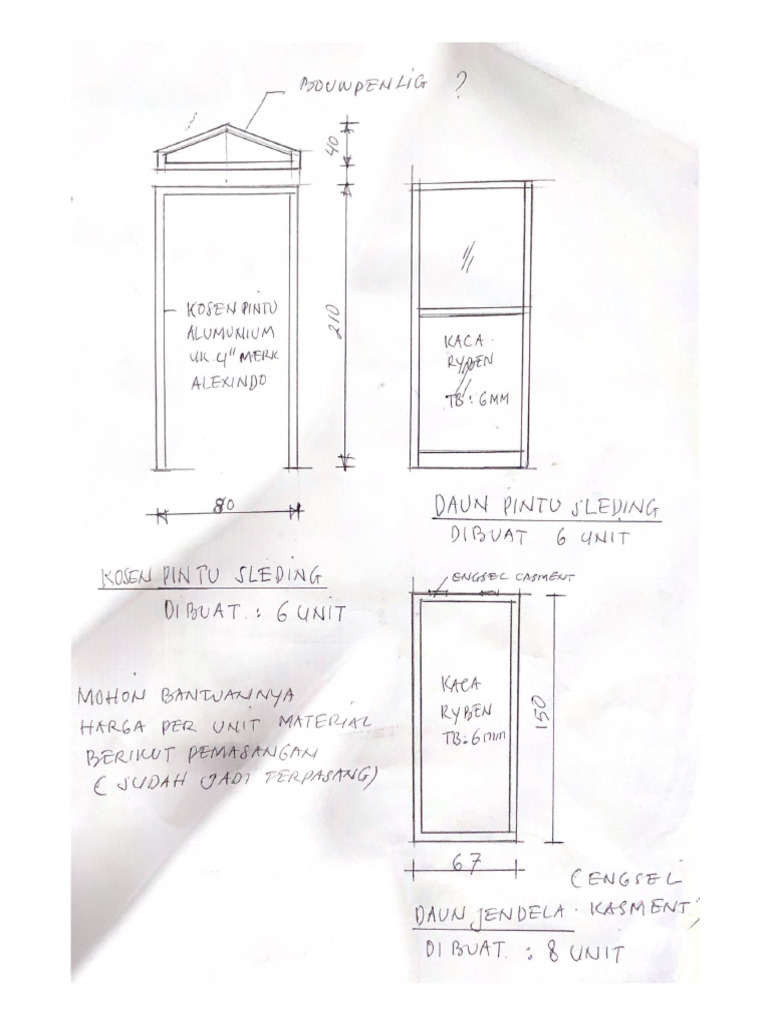 BOUWPENLIG ?
40
210
KOSEN PINTU
ALUMUNIUM
UK. 4" MERK
ALEXINDO
80
KOSEN PINTU SLEDING
DIBUAT. : 6 UNIT
KACA.
RYBEN
TB: 6MM
DAUN PINTU SLEDING
DIBUAT 6 UNIT
MOHON BANTUANNYA
HARGA PER UNIT MATERIAL
BERIKUT PEMASANGAN
( SUDAH JADI TERPASANG)
ENGSEL CASMENT
KACA
RYBEN
TB: 6mm
150
67
( ENGSEL
DAUN JENDELA. KASMENT)
DIBUAT. : 8 UNIT